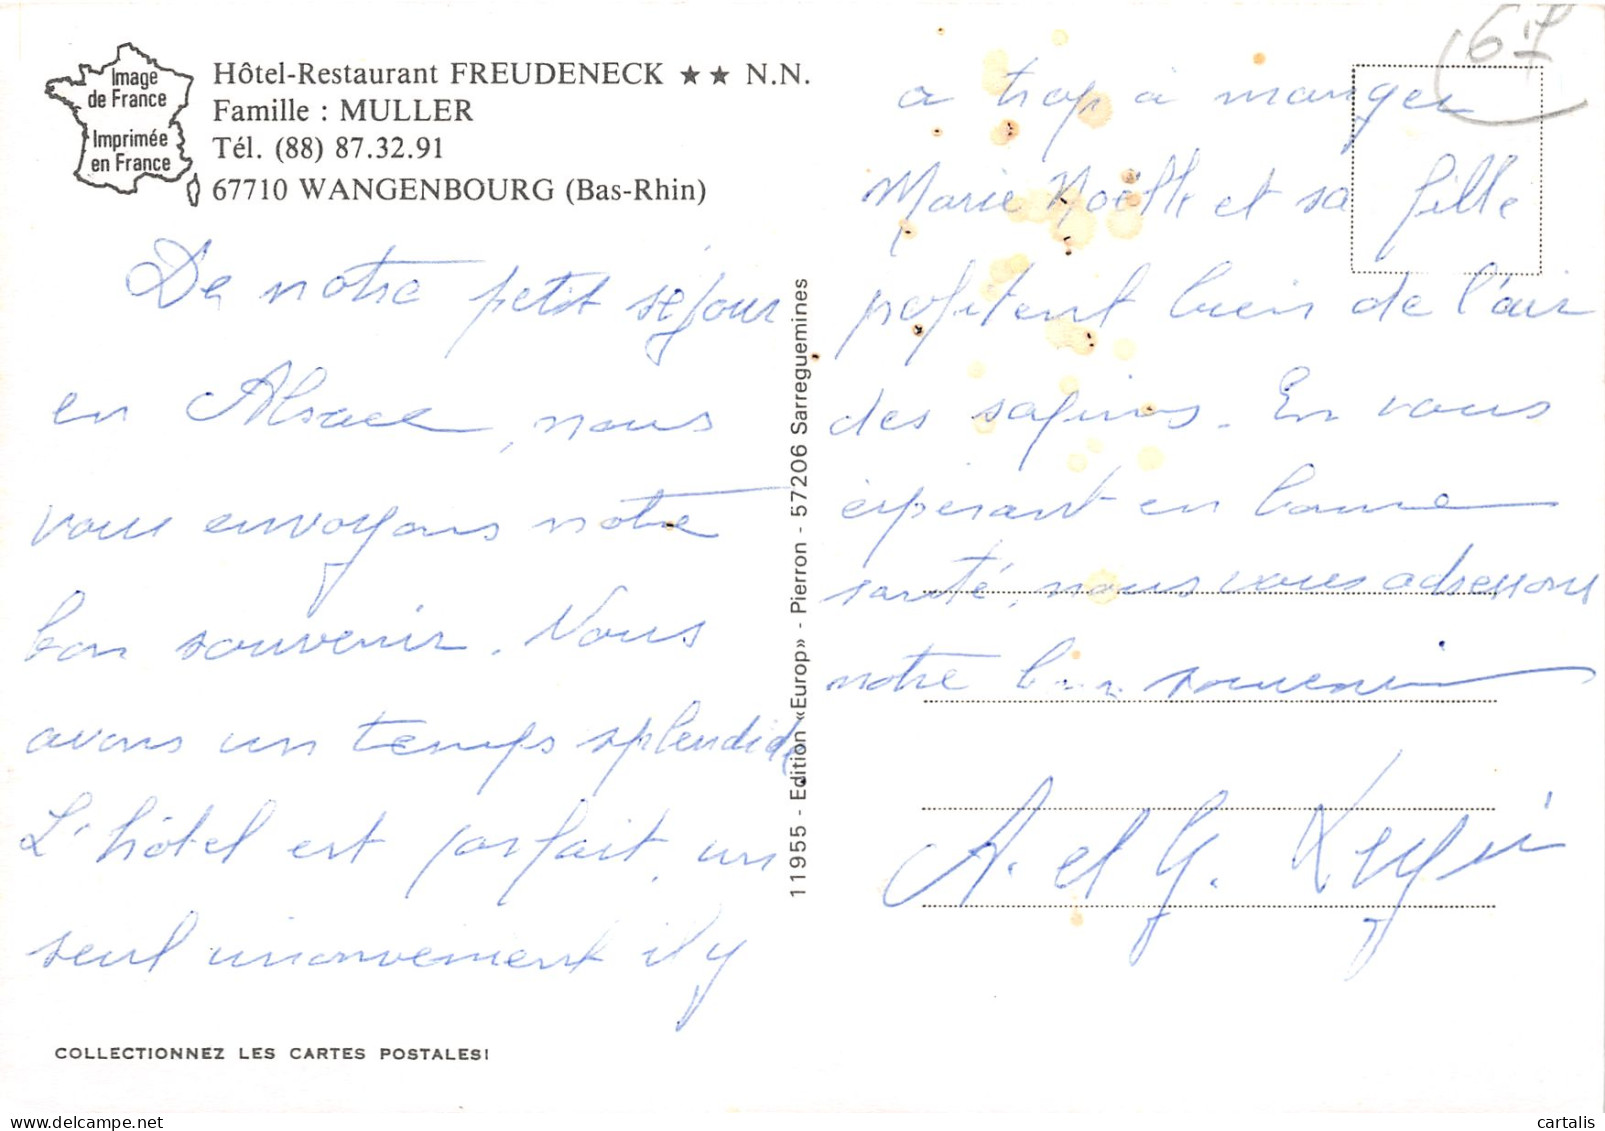 Image
de France
Imprimée
en France
Hôtel-Restaurant FREUDENECK ★★ N.N.
Famille : MULLER
Tél. (88) 87.32.91
67710 WANGENBOURG (Bas-Rhin)
De notre petit séjour
en Alsace, nous
vous envoyons notre
bon souvenir. Nous
avons un temps splendide
L'hôtel est parfait, un
seul inconvenient il y
COLLECTIONNEZ LES CARTES POSTALES!
11955 - Edition «Europ» - Pierron - 57206 Sarreguemines
67
a trop à manger
Marie Noëlle et sa fille
profitent bien de l'air
des sapins. En vous
esperant en bonne
santé, nous vous adressons
notre bon souvenir
A. et G.
cartalis